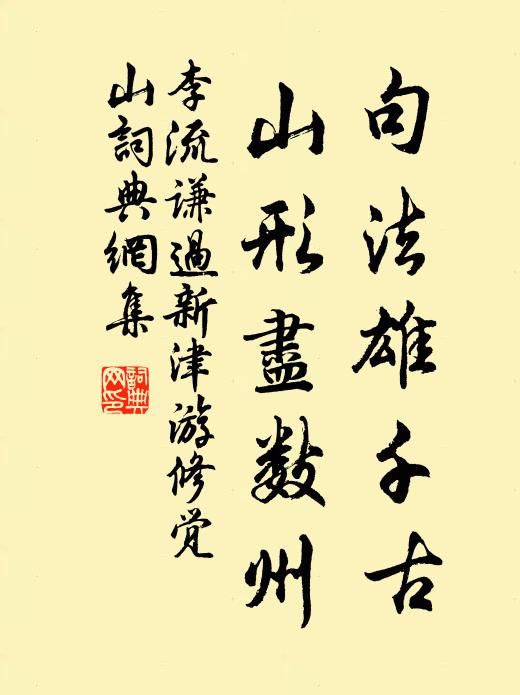 句法雄千古
山形盡数州
李流谦過新津游修觉
山詞典網集
詞典網印